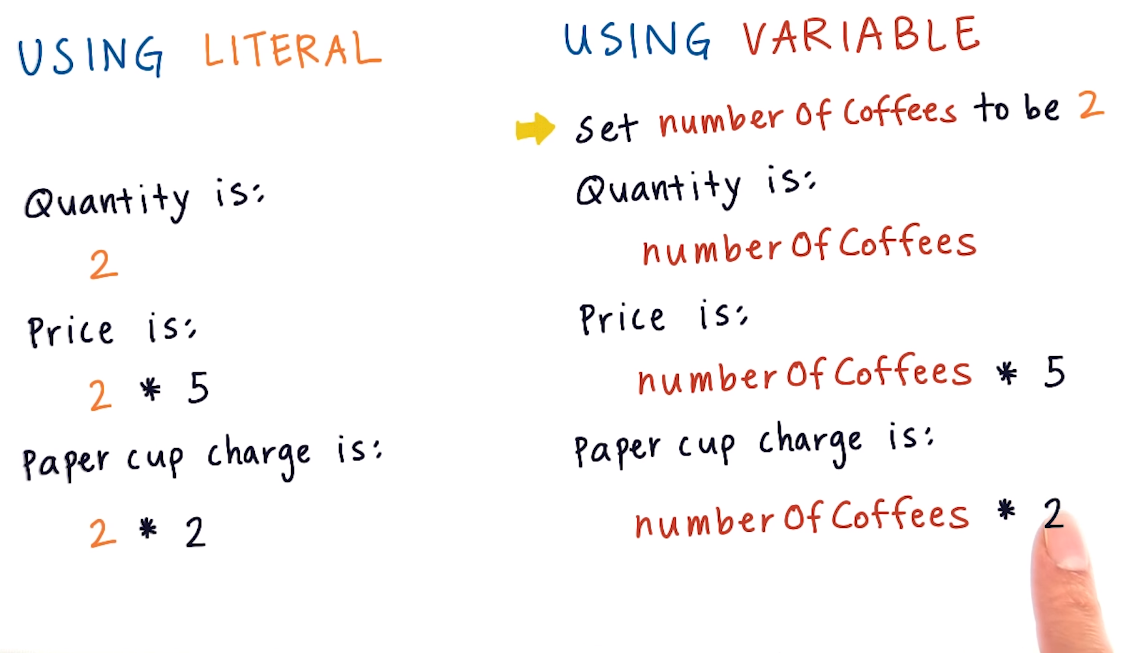 USING LITERAL
Quantity is:
2
Price is:
2 * 5
Paper cup charge is:
2 * 2
USING VARIABLE
set numberOfCoffees to be 2
Quantity is:
numberOfCoffees
Price is:
numberOfCoffees * 5
Paper cup charge is:
numberOfCoffees * 2